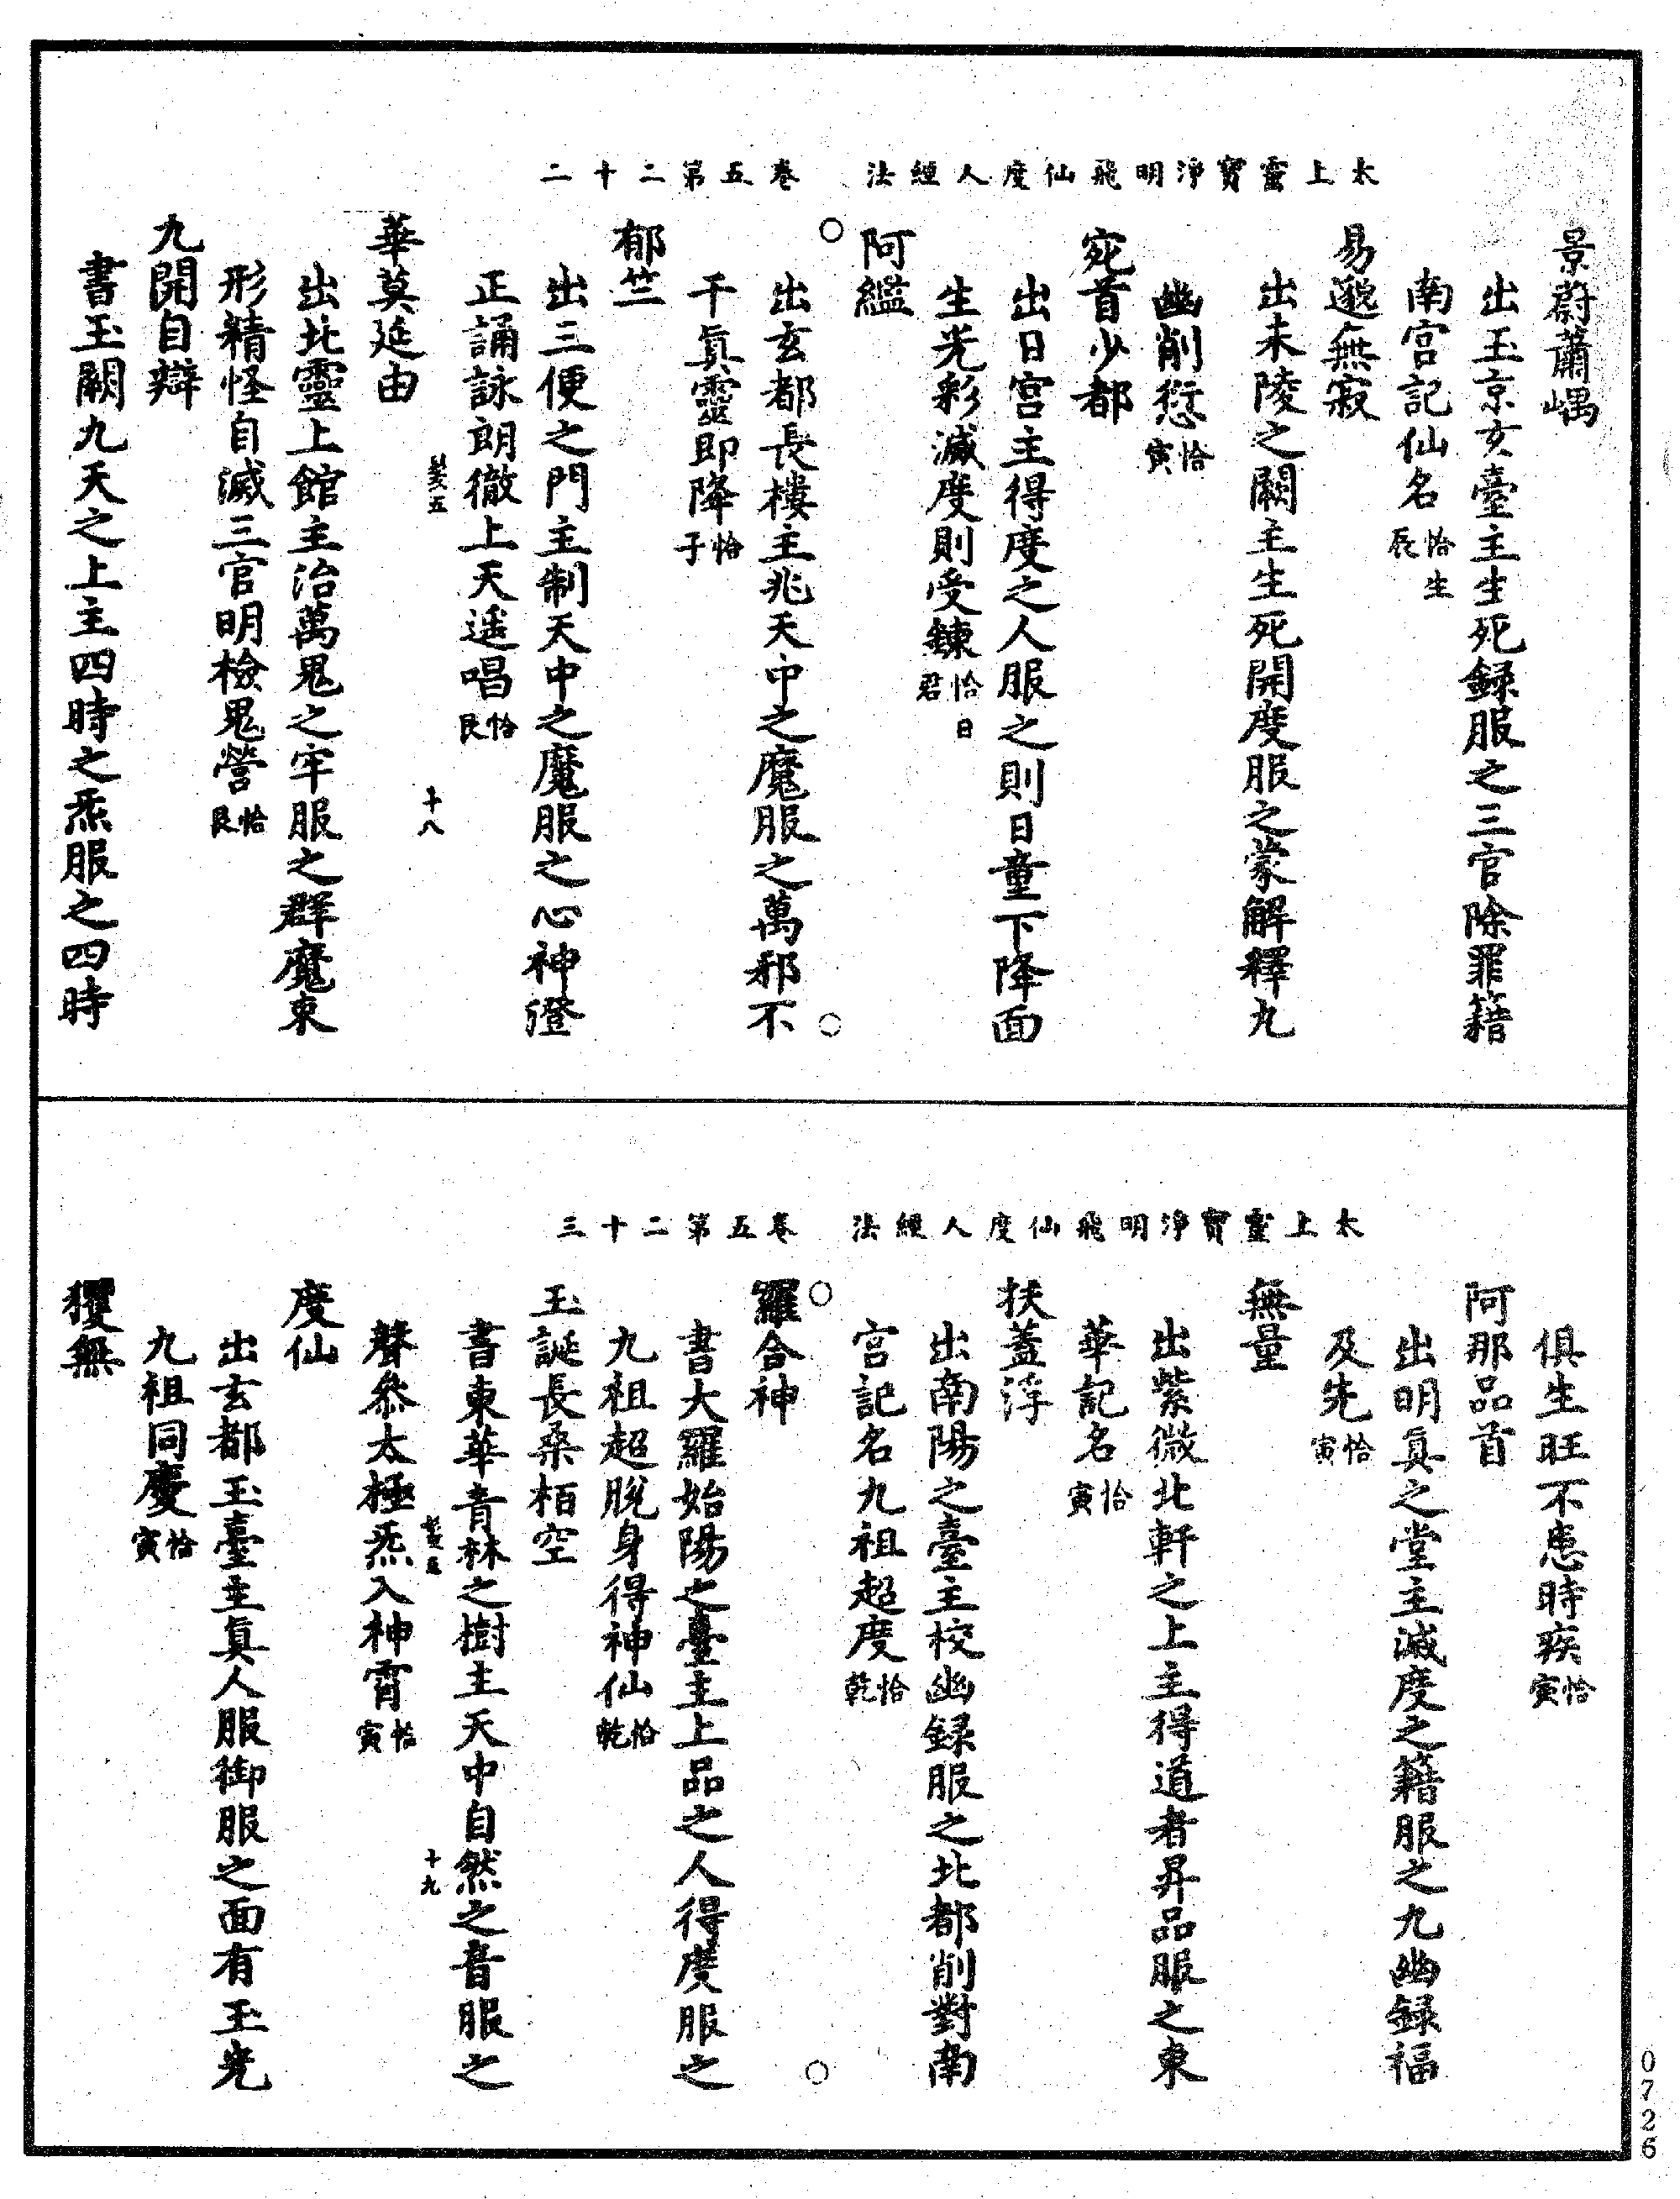 太上靈寶淨明飛仙度人經法　卷五第二十二
景蔚蕭嵎
出玉京玄臺主生死錄服之三官除罪籍
南宮記仙名恰生辰
易邈無寂
出朱陵之闕主生死開度服之蒙解釋九
幽削愆恰寅
宛首少都
出日宮主得度之人服之則日童下降面
生光彩滅度則受鍊恰日君
阿濫
出玄都長樓主兆天中之魔服之萬邪不
干眞靈即降恰子
郁竺
出三便之門主制天中之魔服之心神澄
正誦詠朗徹上天遥唱恰艮
髮五
十八
華莫延由
出北靈上館主治萬鬼之牢服之群魔束
形精怪自滅三官明檢鬼營恰艮
九開自辯
書玉闕九天之上主四時之炁服之四時
太上靈寶淨明飛仙度人經法　卷五第二十三
俱生旺不患時疾恰寅
阿那品首
出明眞之堂主滅度之籍服之九幽錄福
及先恰寅
無量
出紫微北軒之上主得道者昇品服之東
華記名恰寅
扶蓋浮
出南陽之臺主校幽錄服之北都削對南
宮記名九祖超度恰乾
羅合神
書大羅始陽之臺主上品之人得度服之
九祖超脫身得神仙恰乾
玉誕長桑栢空
書東華青林之樹主天中自然之音服之
髮五
十九
聲叅太極炁入神霄恰寅
度仙
出玄都玉臺主眞人服御服之面有玉光
九祖同慶恰寅
玃無
0726